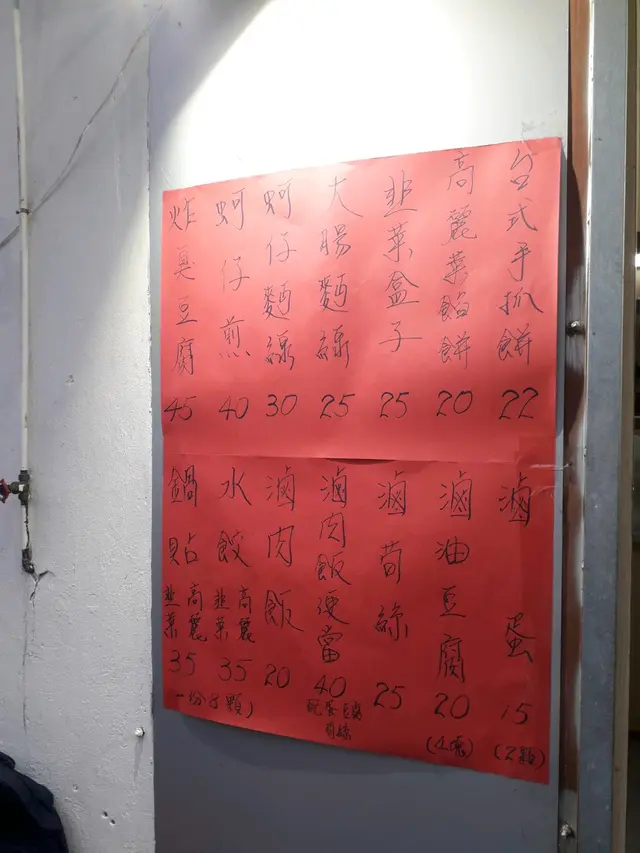 台式手抓餅 22
高麗菜餡餅 20
韭菜盒子 25
大腸麵線 25
蚵仔麵線 30
蚵仔煎 40
炸臭豆腐 45
滷蛋 15 (2顆)
滷油豆腐 20 (4塊)
滷筍絲 25
滷肉飯便當 40 配蛋豆腐筍絲
滷肉飯 20
水餃 高麗 韭菜 35
鍋貼 高麗 韭菜 35
一份8顆)